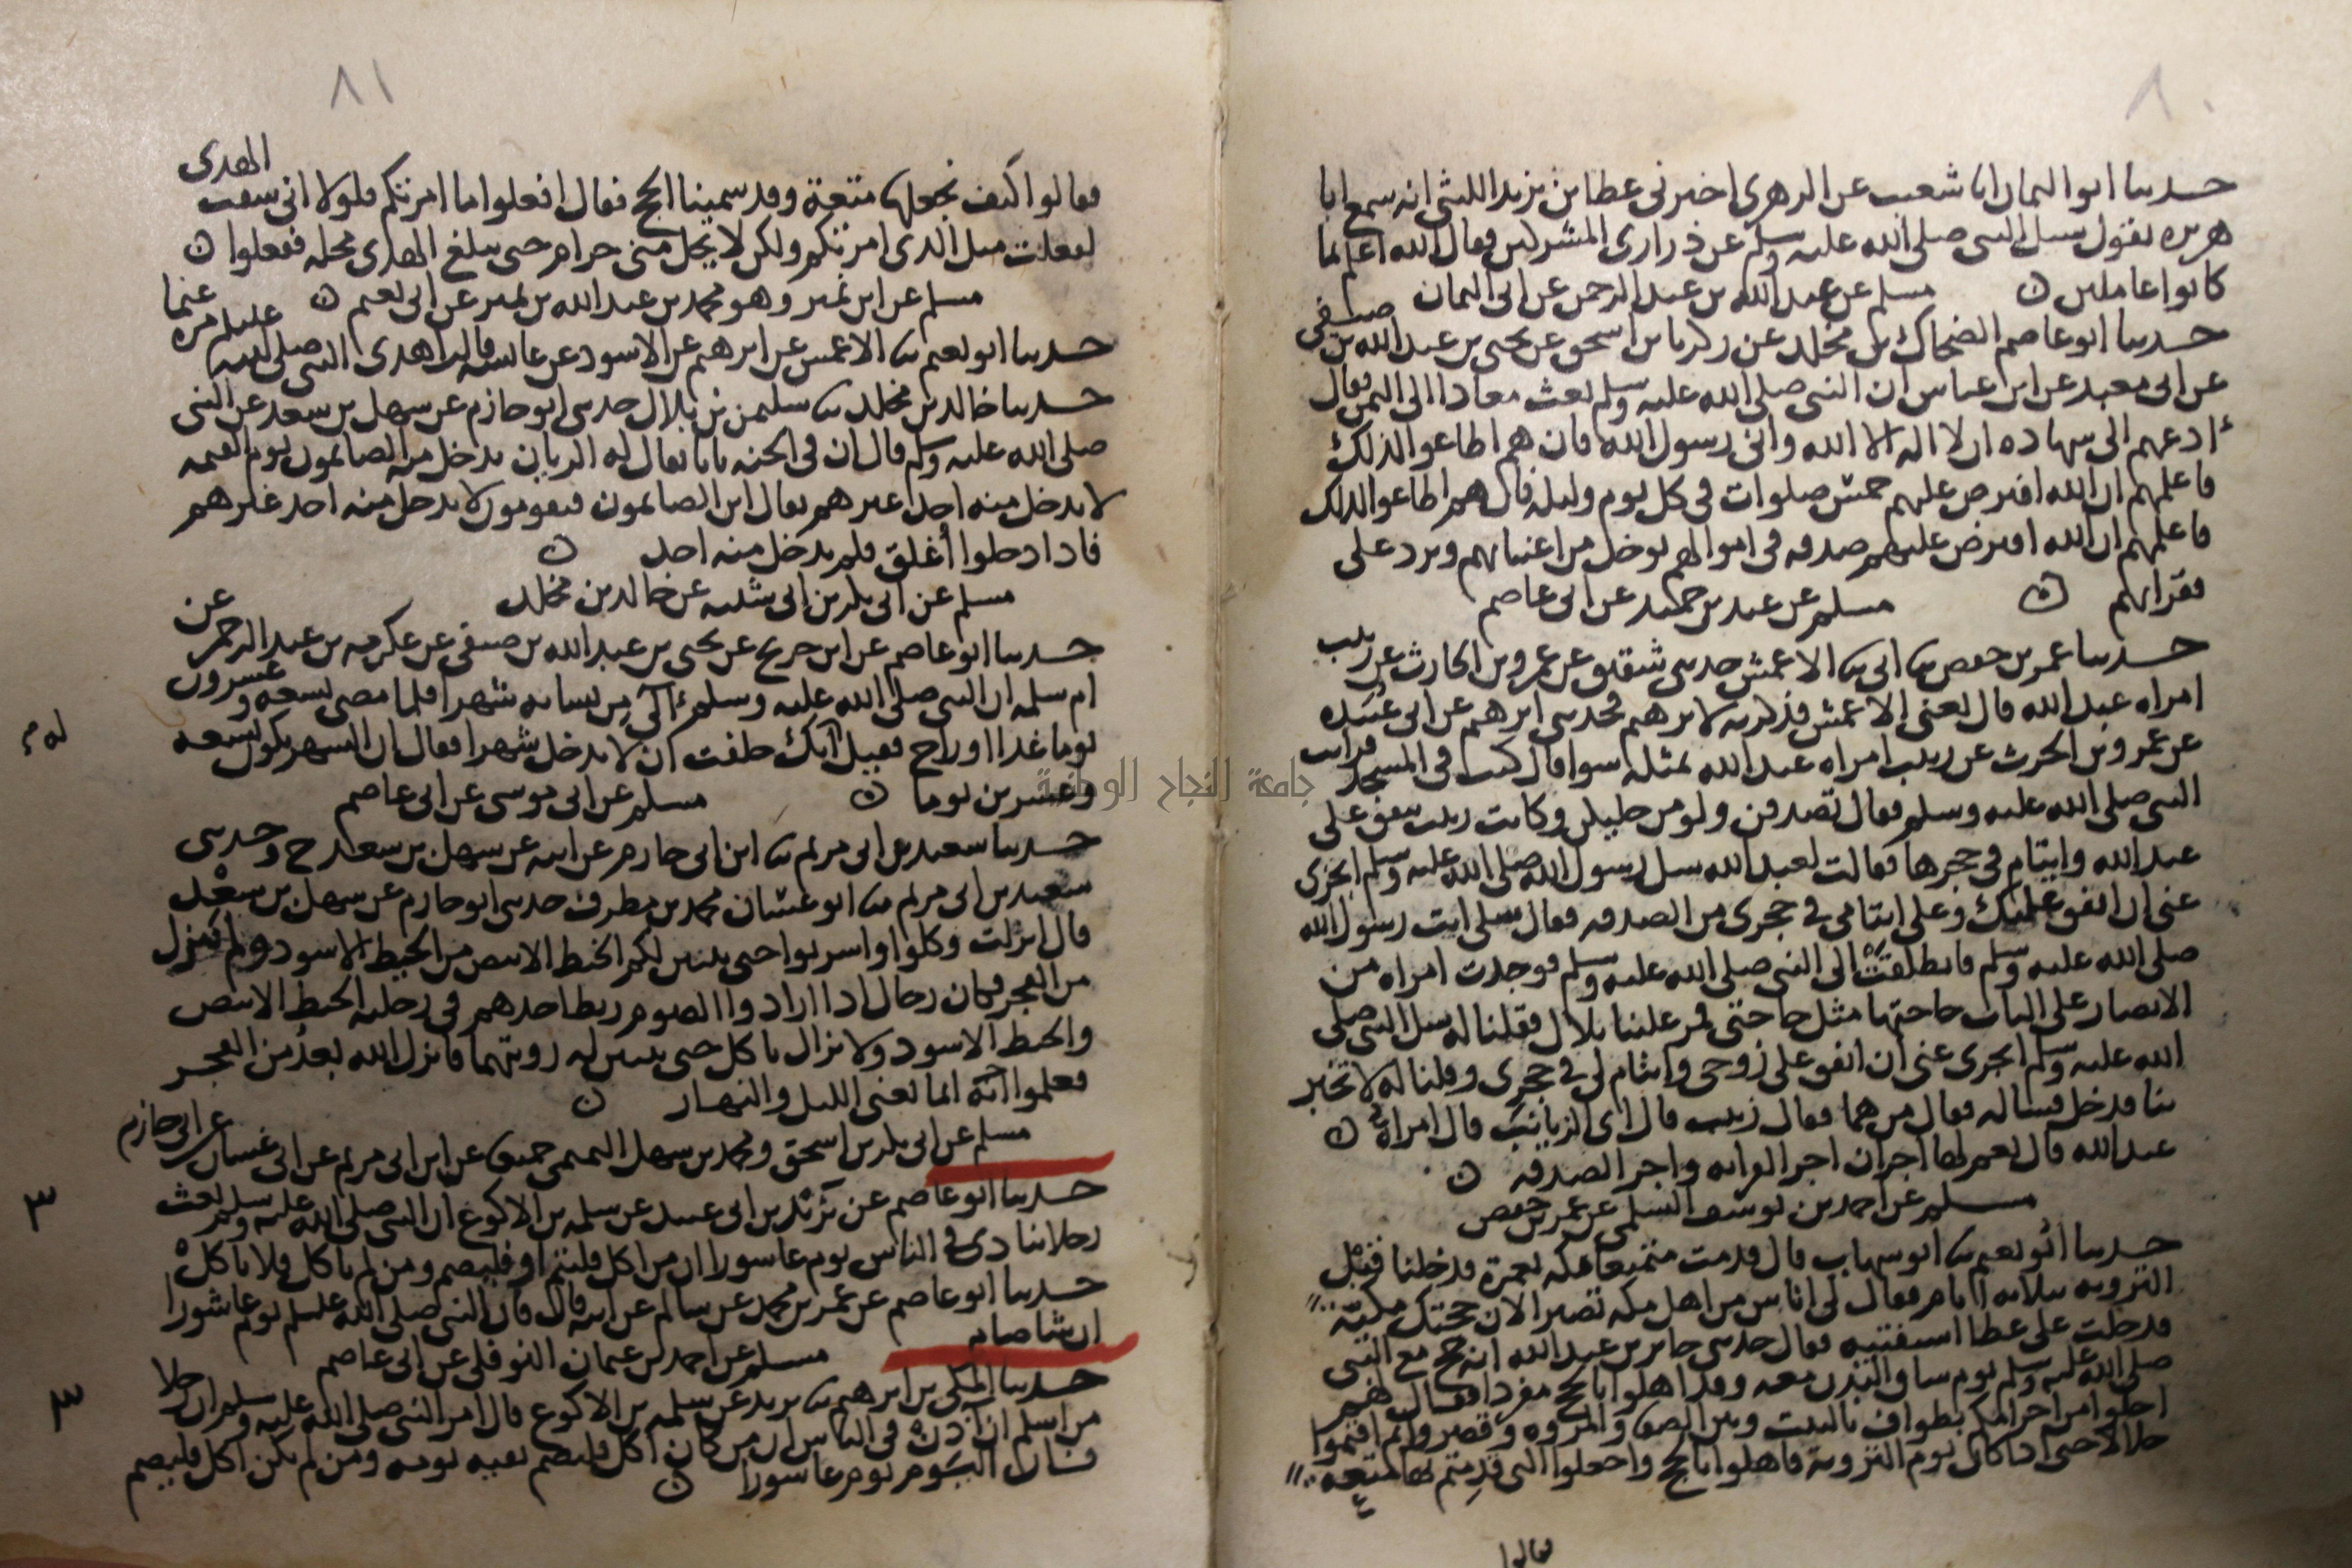 ٨٠
حدىىا ابو الىمان انا شعىب عن الزهرى اخبرنى عطا بن يزيد الليثى انه سمع ابا
هريره يقول سىل النبى صلى الله عليه وسلم عن ذرارى المشركين فقال الله اعلم بما
كانوا عاملين ن مسلم عن عبد الله بن عبد الرحمن عن ابى اليمان
حدىىا ابو عاصم الضحاك بن مخلد عن زكريا بن اسحق عن يحيى بن عبد الله بن صيفى
عن ابى معبد عن ابن عباس ان النبى صلى الله عليه وسلم بعث معاذا الى اليمن فقال
ادعهم الى شهاده ان لا اله الا الله وانى رسول الله فان هم اطاعوا لذلك
فاعلمهم ان الله افترض عليهم خمس صلوات فى كل يوم وليله فان هم اطاعوا لذلك
فاعلمهم ان الله افترض عليهم صدقه فى اموالهم توخذ من اغنيائهم وترد على
فقرائهم ن مسلم عن عبد بن حميد عن ابى عاصم
حدىىا عمر بن حفص ىا ابى ىا الاعمش حدىى شقيق عن عمرو بن الحارث عن زينب
امراه عبد الله قال يعنى الاعمش فذكرته لابرهيم فحدىى ابرهيم عن ابى عبيده
عن عمرو بن الحرث عن زينب امراه عبد الله بمثله سوا قال كنت فى المسجد فرايت
النبى صلى الله عليه وسلم فقال تصدقن ولو من حليكن وكانت زينب تنفق على
عبد الله وايتام فى حجرها فقالت لعبد الله سل رسول الله صلى الله عليه وسلم ايجزى
عنى ان انفق عليك وعلى ايتامى فى حجرى من الصدقه فقال سلى انت رسول الله
صلى الله عليه وسلم فانطلقت الى النبى صلى الله عليه وسلم فوجدت امراه من
الانصار على الباب حاجتها مثل حاجتى فمر علينا بلال فقلنا له سل النبى صلى
الله عليه وسلم ايجزى عنى ان انفق على زوجى وايتام لى فى حجرى وقلنا له لا تخبر
بنا فدخل فساله فقال من هما فقال زينب قال اى الزيانب قال امراة
عبد الله قال نعم لها اجران اجر القرابه واجر الصدقه ن
مسلم عن احمد بن يوسف السلمى عن عمر بن حفص
حدىىا ابو نعيم ىا ابو شهاب قال قدمت متمتعا مكه بعمرة فدخلنا قبل
الترويه بثلاثه ايام فقال لى اناس من اهل مكه تصير الان حجتك مكية
فدخلت على عطا استفتيه فقال حدىى جابر بن عبد الله انه حج مع النبى
صلى الله عليه وسلم يوم ساق البدن معه وقد اهلوا بالحج مفردا فقال لهم
احلوا من احرامكم بطواف بالبيت وبين الصفا والمروه وقصروا ثم اقيموا
حلالا حتى اذا كان يوم الترويه فاهلوا بالحج واجعلوا التى قدمتم بها متعه
فقالوا
٨١
فقالوا كيف نجعلها متعة وقد سمينا الحج فقال افعلوا ما امرتكم فلولا انى سقت الهدى
لفعلت مثل الذى امرتكم ولكن لا يحل منى حرام حتى يبلغ الهدى محله ففعلوا ن
مسلم عن ابن نمير وهو محمد بن عبد الله بن نمير عن ابى نعيم ن
حدىىا ابو نعيم ىا الاعمش عن ابرهيم عن الاسود عن عائشه قالت اهدى النبى صلى الله عليه مره غنما
حدىىا خالد بن مخلد ىا سليمن بن بلال حدىى ابو حازم عن سهل بن سعد عن النبى
صلى الله عليه وسلم قال ان فى الجنه بابا يقال له الريان يدخل منه الصائمون يوم القيمه
لا يدخل منه احد غيرهم يقال اين الصائمون فيقومون لا يدخل منه احد غيرهم
فاذا دخلوا أغلق فلم يدخل منه احد ن
مسلم عن ابى بكر بن ابى شيبه عن خالد بن مخلد
حدىىا ابو عاصم عن ابن جريج عن يحيى بن عبد الله بن صيفى عن عكرمه بن عبد الرحمن عن
ام سلمه ان النبى صلى الله عليه وسلم آلى من نسائه شهرا فلما مضى تسعه وعشرون
يوما غدا او راح فقيل انك حلفت ان لا تدخل شهرا فقال ان الشهر يكون تسعه
وعشرين يوما ن مسلم عن ابى موسى عن ابى عاصم
حدىىا سعيد بن ابى مريم ىا ابن ابى حازم عن ابيه عن سهل بن سعد ح وحدىى
سعيد بن ابى مريم ىا ابو غسان محمد بن مطرف حدىى ابو حازم عن سهل بن سعد
قال انزلت وكلوا واشربوا حتى يتبين لكم الخيط الابيض من الخيط الاسود ولم ينزل
من الفجر فكان رجال اذا ارادوا الصوم ربط احدهم فى رجليه الخيط الابيض
والخيط الاسود ولا يزال ياكل حتى يتبين له رويتهما فانزل الله بعد من الفجر
فعلموا انه انما يعنى الليل والنهار ن
مسلم عن ابى بكر بن اسحق ومحمد بن سهل التميمى جميعا عن ابن ابى مريم عن ابى غسان عن ابى حازم
حدىىا ابو عاصم عن يزيد بن ابى عبيد عن سلمه بن الاكوع ان النبى صلى الله عليه وسلم بعث
رجلا ينادى فى الناس يوم عاشورا ان من اكل فليتم او فليصم ومن لم ياكل فلا ياكل
حدىىا ابو عاصم عن عمر بن محمد عن سالم عن ابيه قال قال النبى صلى الله عليه وسلم يوم عاشورا
ان شا صام
مسلم عن احمد بن عثمان النوفلى عن ابى عاصم
حدىىا المكى بن ابرهيم ىا يزيد عن سلمه بن الاكوع قال امر النبى صلى الله عليه وسلم رجلا
من اسلم ان أذن فى الناس ان من كان اكل فليصم بقيه يومه ومن لم يكن اكل فليصم
فان اليوم يوم عاشورا ن
٣
٣
جامعة النجاح الوطنية